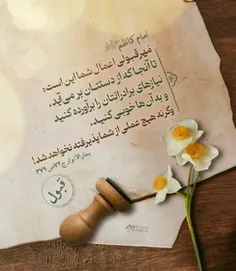 امام کاظم
مهر قبولی اعمال شما این است:
تا آنجا که از دستتان بر می‌آید،
نیازهای برادرانتان را برآورده کنید
و به آن‌ها خوبی کنید.
وگرنه هیچ عملی از شما پذیرفته نخواهد شد!
بحارالانوار ج ۷۲ ص ۳۷۹
قبول